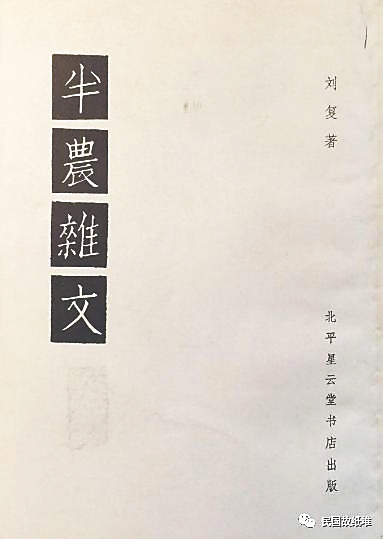 半農雜文
刘复著
北平星云堂书店出版
民国故纸堆